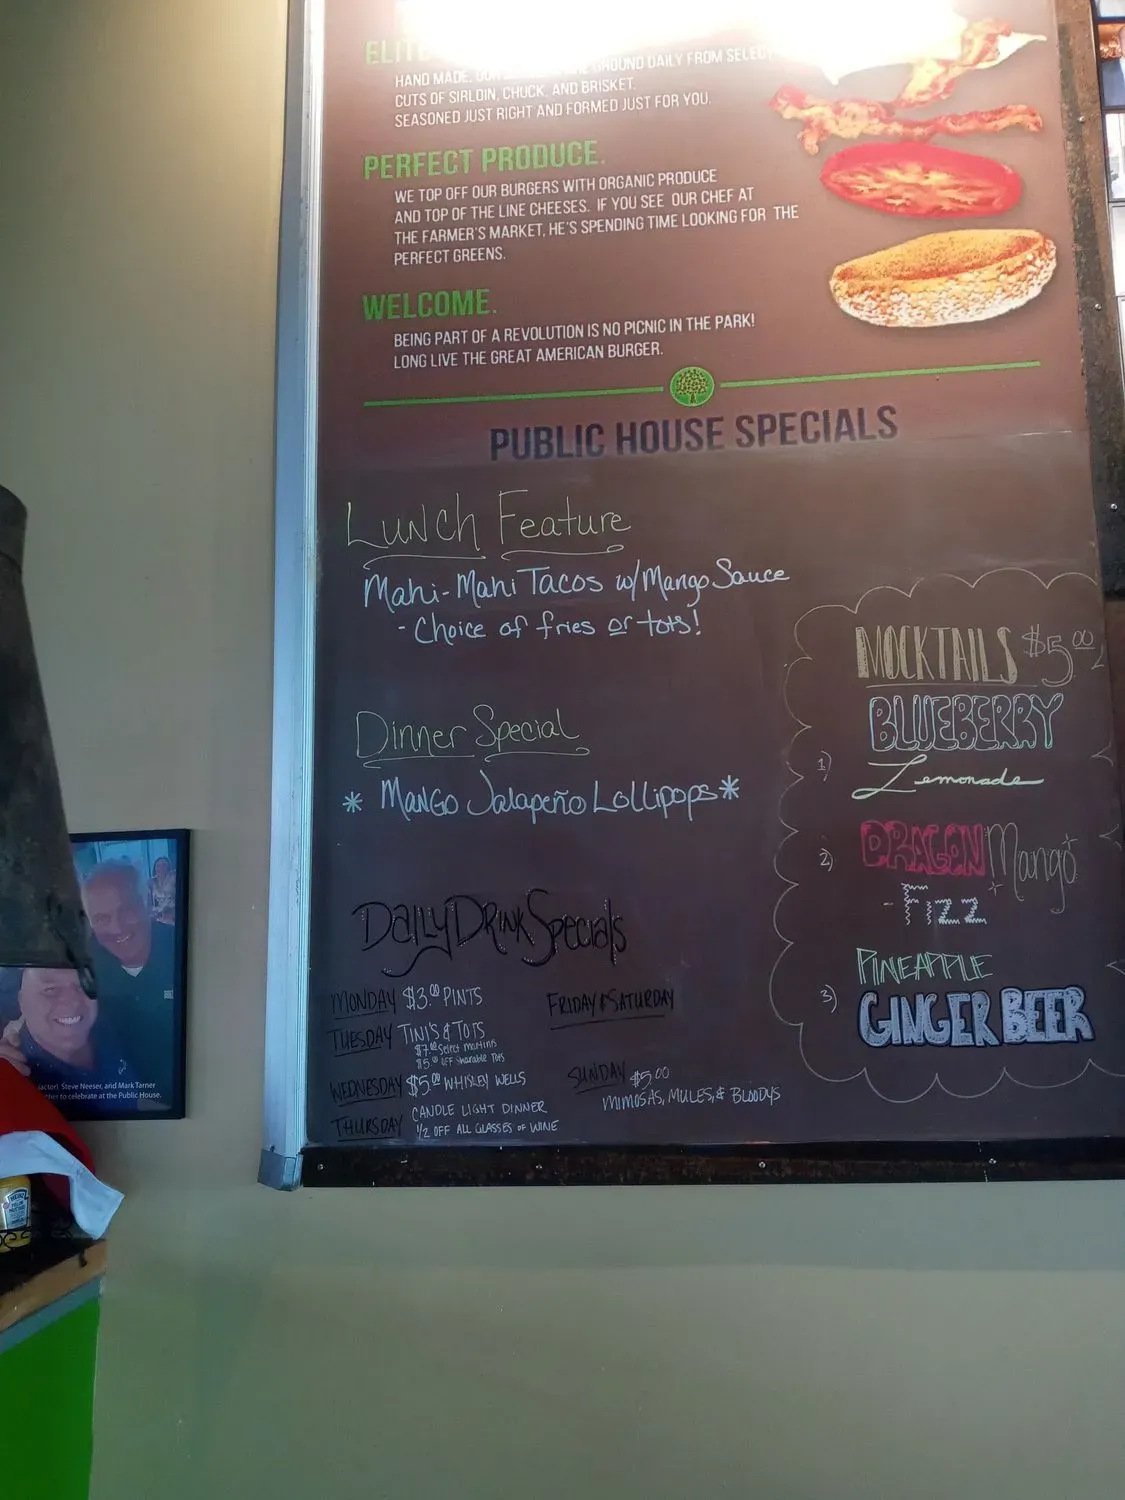 ELITE
HAND MADE, GROUND DAILY FROM SELECT
CUTS OF SIRLOIN, CHUCK, AND BRISKET.
SEASONED JUST RIGHT AND FORMED JUST FOR YOU.
PERFECT PRODUCE.
WE TOP OFF OUR BURGERS WITH ORGANIC PRODUCE
AND TOP OF THE LINE CHEESES. IF YOU SEE OUR CHEF AT
THE FARMER'S MARKET, HE'S SPENDING TIME LOOKING FOR THE
PERFECT GREENS.
WELCOME.
BEING PART OF A REVOLUTION IS NO PICNIC IN THE PARK!
LONG LIVE THE GREAT AMERICAN BURGER.
PUBLIC HOUSE SPECIALS
Lunch Feature
Mahi-Mahi Tacos w/Mango Sauce
- Choice of fries or tots!
Dinner Special
* Mango Jalapeño Lollipops *
Daily Drink Specials
MONDAY $3.00 PINTS
TUESDAY TINI'S & TOTS
$7.00 Select Martinis
$5.00 OFF Sharable Tots
WEDNESDAY $5.00 WHISKEY WELLS
THURSDAY CANDLE LIGHT DINNER
1/2 OFF ALL GLASSES OF WINE
FRIDAY & SATURDAY
SUNDAY $5.00
MIMOSAS, MULES, & BLOODYS
MOCKTAILS $5.00
1) BLUEBERRY
Lemonade
2) DRAGON Mango
- Fizz
3) PINEAPPLE
GINGER BEER
actor), Steve Neeser, and Mark Tarner
to celebrate at the Public House.
HEINZ